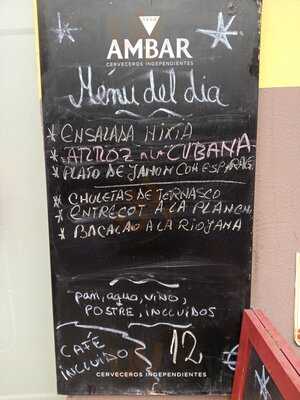 AMBAR
CERVECEROS INDEPENDIENTES
Menú del dia
* ENSALADA MIXTA
* ARROZ A LA CUBANA
* PLATO DE JAMON CON ESPARRAG
* CHULETAS DE TERNASCO
* ENTRECOT A LA PLANCH
* BACALAO A LA RIOJANA
pan, agua, vino,
POSTRE, INCLUIDOS
CAFÉ
INCLUIDO
12
CERVECEROS INDEPENDIENTES